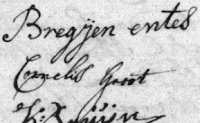 Bregyen entes
Cornelis Groot